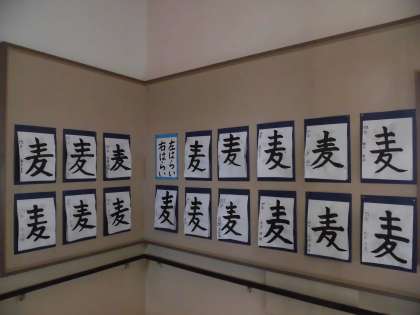 麦
麦
麦
左はらい
右はらい
麦
麦
麦
麦
麦
麦
麦
麦
麦
麦
麦
麦
麦
麦